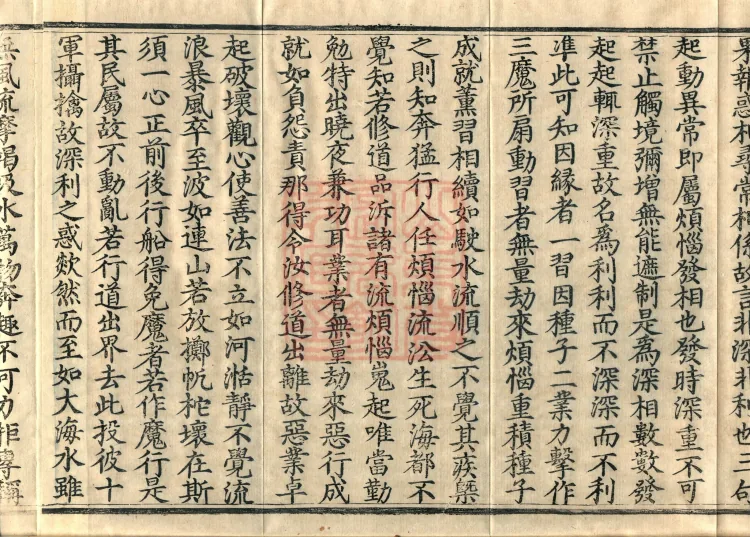 果報惡相尋常相係故言非深非利也三句
起動異常即屬煩惱發相也發時深重不可
禁止觸境彌增無能遮制是爲深相數數發
起起輒深重故名爲利利而不深深而不利
准此可知因緣者一習因種子二業力擊作
三魔所扇動習者無量劫來煩惱重積種子
成就薰習相續如駛水流順之不覺其疾槩
之則知奔猛行人任煩惱流沿生死海都不
覺知若修道品泝諸有流煩惱嵬起唯當勤
勉特出曉夜兼功耳業者無量劫來惡行成
就如負怨責那得令汝修道出離故惡業卓
起破壞觀心使善法不立如河湉靜不覺流
浪暴風卒至波如連山若放擲帆柁壞在斯
須一心正前後行船得免魔者若作魔行是
其民屬故不動亂若行道出界去此投彼十
軍攝擒故深利之惑欻然而至如大海水雖
無風流摩竭吸水萬物奔趣不可力拒專稱